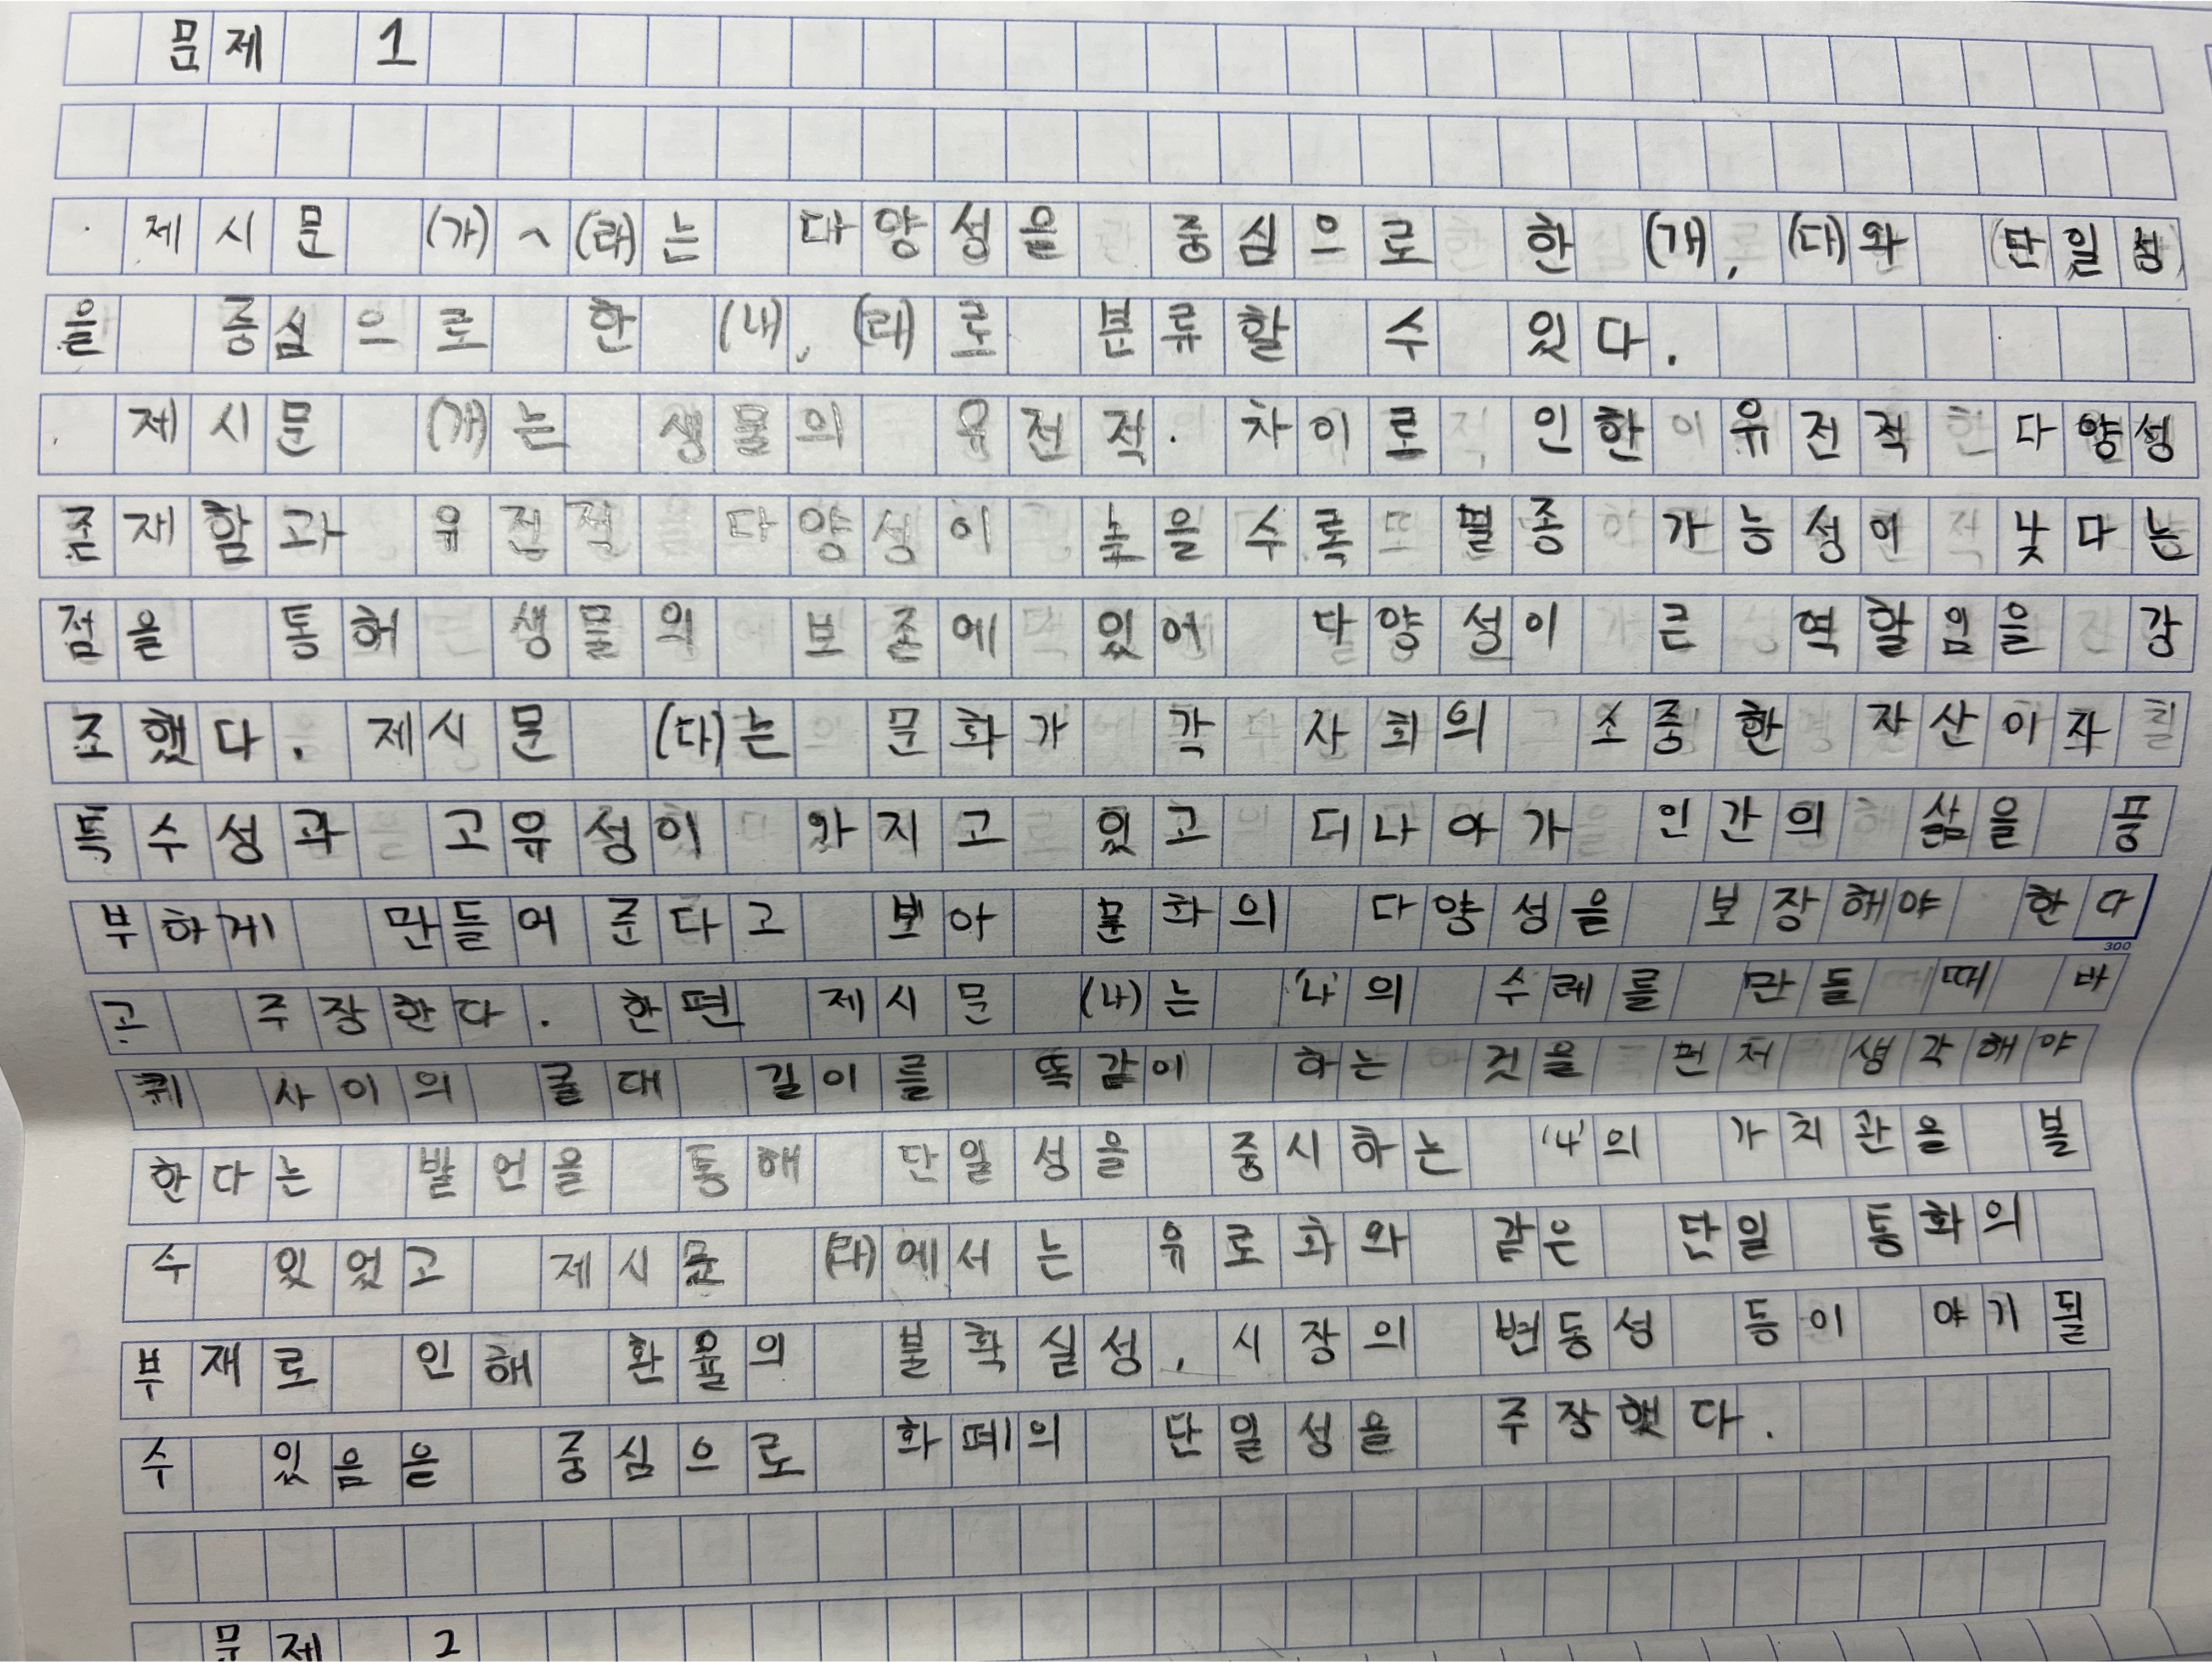 문제 1
제시문 (가)~(라)는 다양성을 중심으로 한 (가), (다)와 단일성
을 중심으로 한 (나), (라)로 분류할 수 있다.
제시문 (가)는 생물의 유전적 차이로 인한 유전적 다양성
존재함과 유전적 다양성이 높을수록 멸종 가능성이 낮다는
점을 통해 생물의 보존에 있어 다양성이 큰 역할임을 강
조했다. 제시문 (다)는 문화가 각 사회의 소중한 자산이자
특수성과 고유성이 가지고 있고 더나아가 인간의 삶을 풍
부하게 만들어준다고 보아 문화의 다양성을 보장해야 한다
고 주장한다. 한편 제시문 (나)는 '나'의 수레를 만들 때 바
퀴 사이의 굴대 길이를 똑같이 하는 것을 먼저 생각해야
한다는 발언을 통해 단일성을 중시하는 '나'의 가치관을 볼
수 있었고 제시문 (라)에서는 유로화와 같은 단일 통화의
부재로 인해 환율의 불확실성, 시장의 변동성 등이 야기될
수 있음을 중심으로 화폐의 단일성을 주장했다.
문제 2